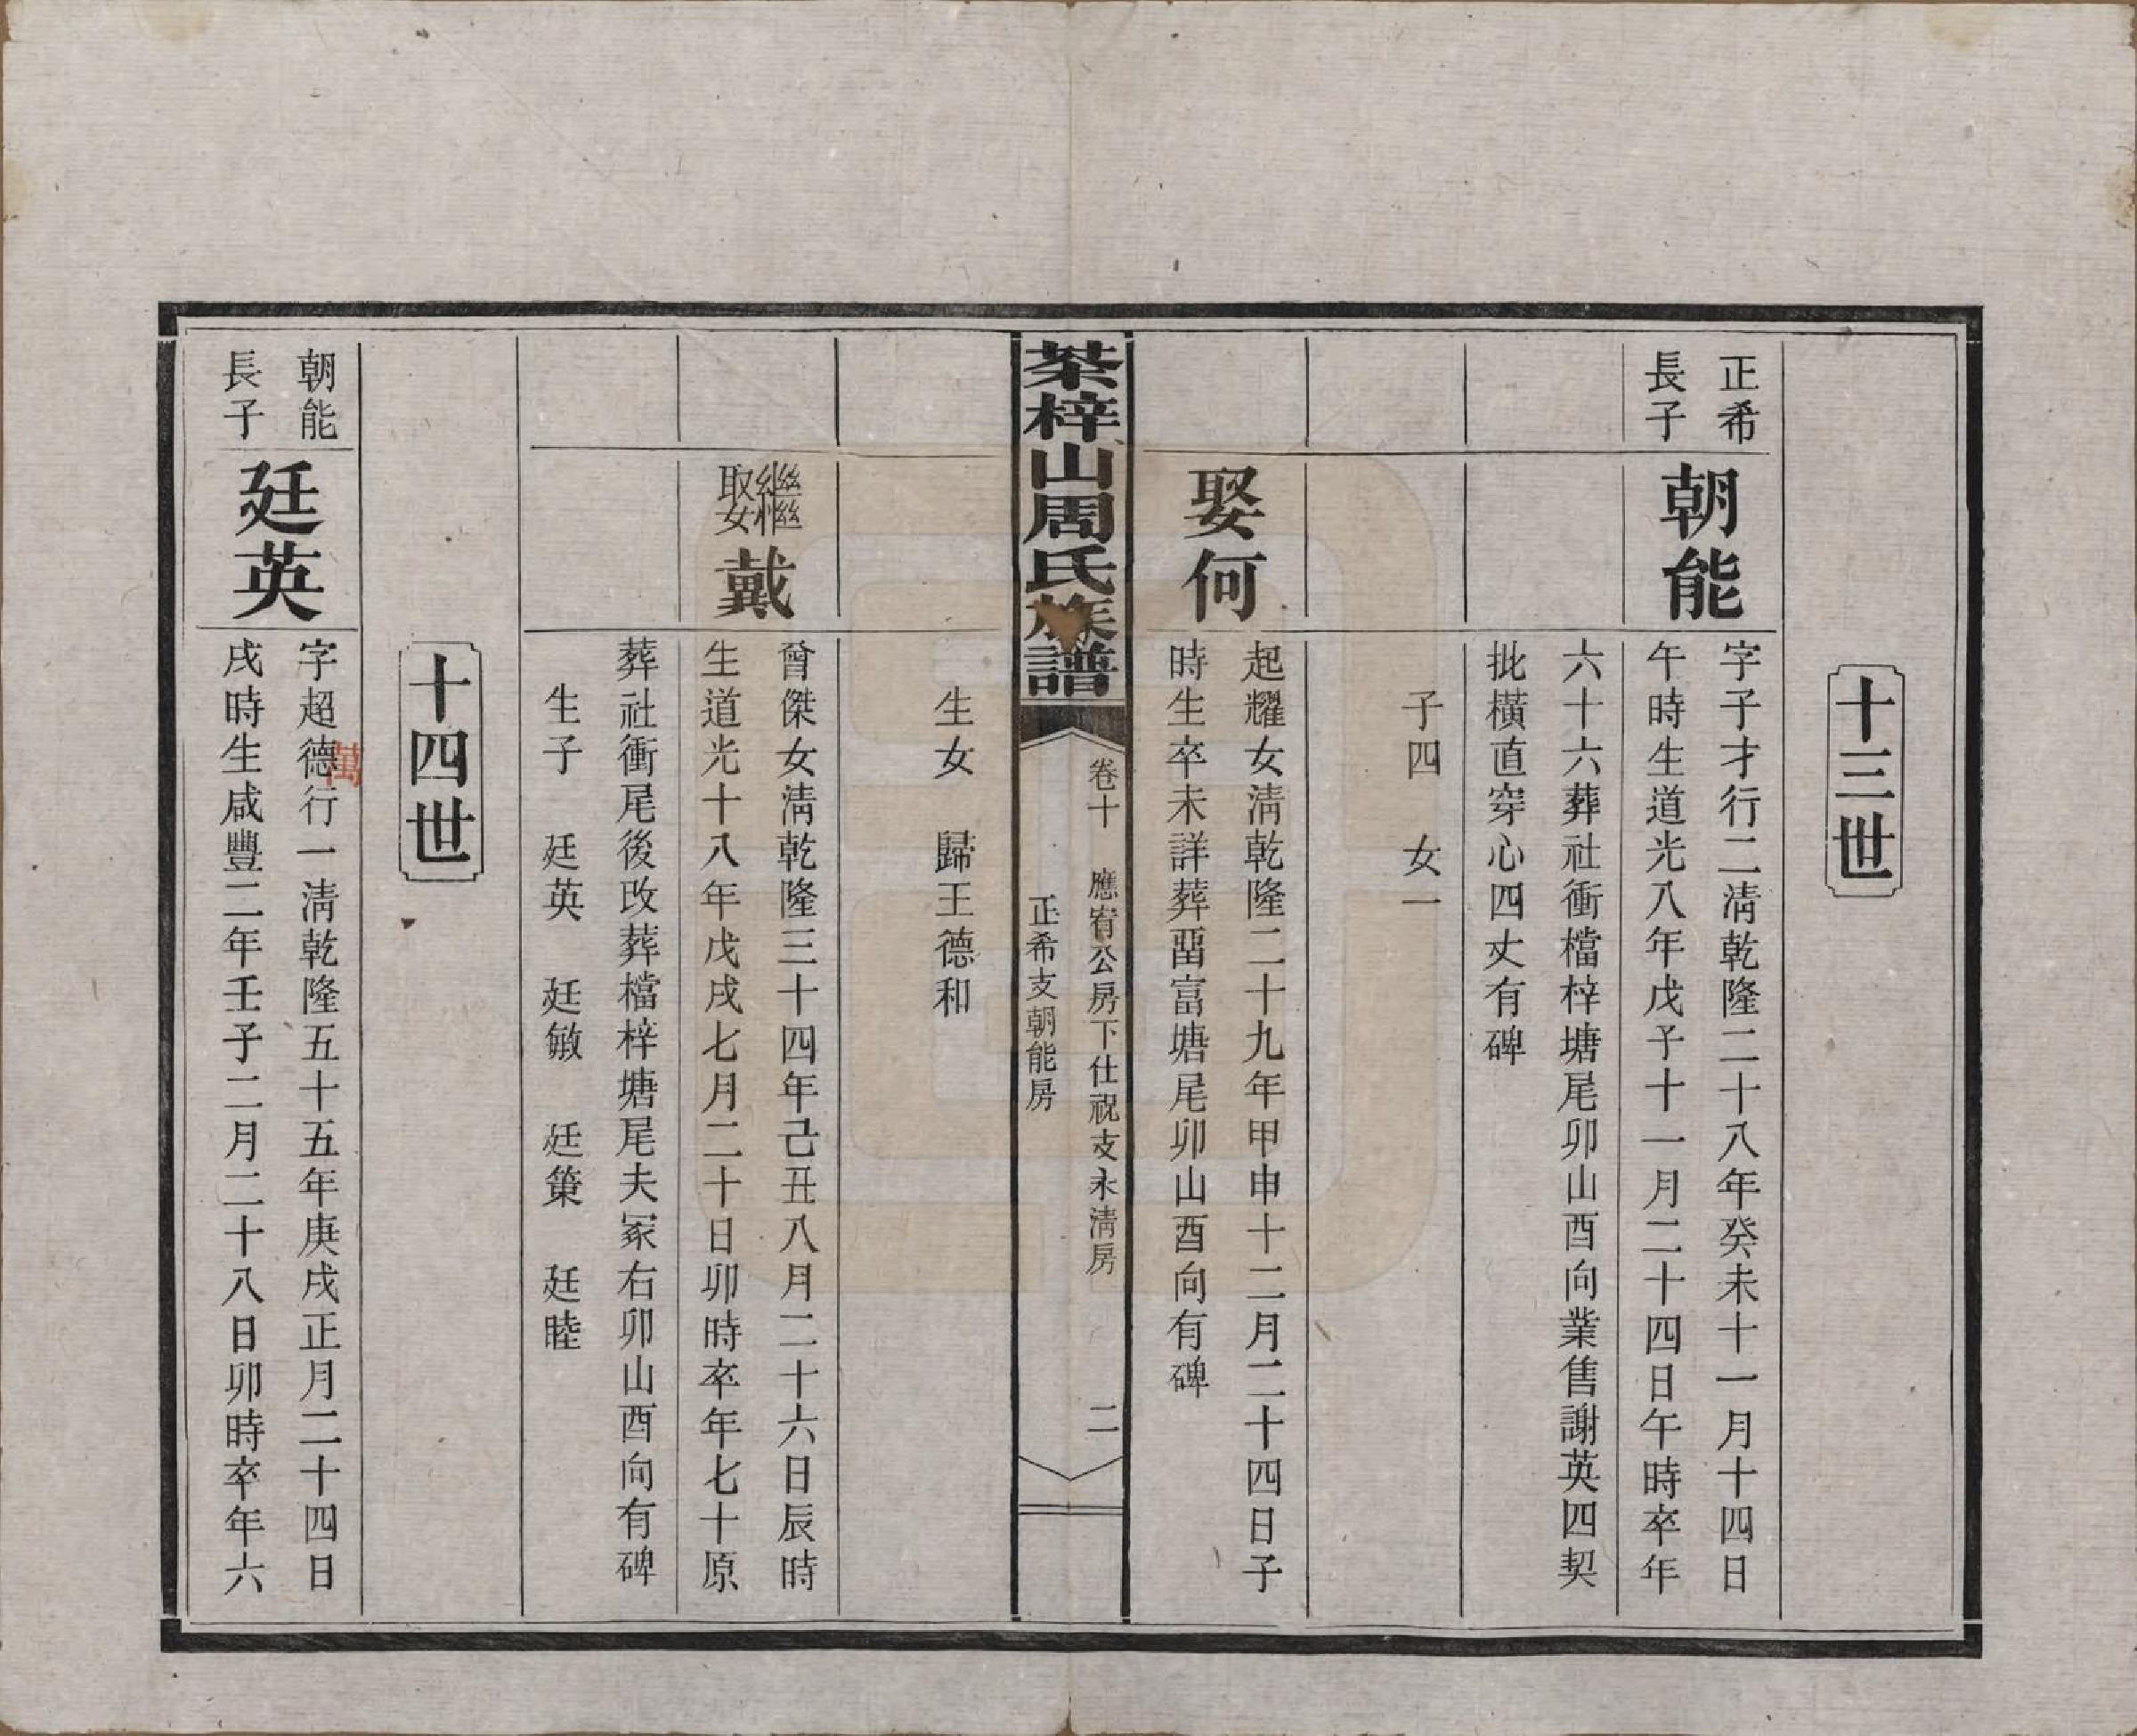 十三世
正希
長子
朝能
字子才行二淸乾隆二十八年癸未十一月十四日
午時生道光八年戊子十一月二十四日午時卒年
六十六葬社衝檔梓塘尾卯山酉向業售謝英四契
批橫直穿心四丈有碑
子四　女一
娶何
起耀女淸乾隆二十九年甲申十二月二十四日子
時生卒未詳葬畱富塘尾卯山酉向有碑
茶梓山周氏族譜
卷十　應宥公房下仕祝支永淸房　二
正希支朝能房
生女　歸王德和
繼娶戴
曾傑女淸乾隆三十四年己丑八月二十六日辰時
生道光十八年戊戌七月二十日卯時卒年七十原
葬社衝尾後改葬檔梓塘尾夫冢右卯山酉向有碑
生子　廷英　廷敏　廷策　廷睦
十四世
朝能
長子
廷英
字超德行一淸乾隆五十五年庚戌正月二十四日
萬
戌時生咸豐二年壬子二月二十八日卯時卒年六